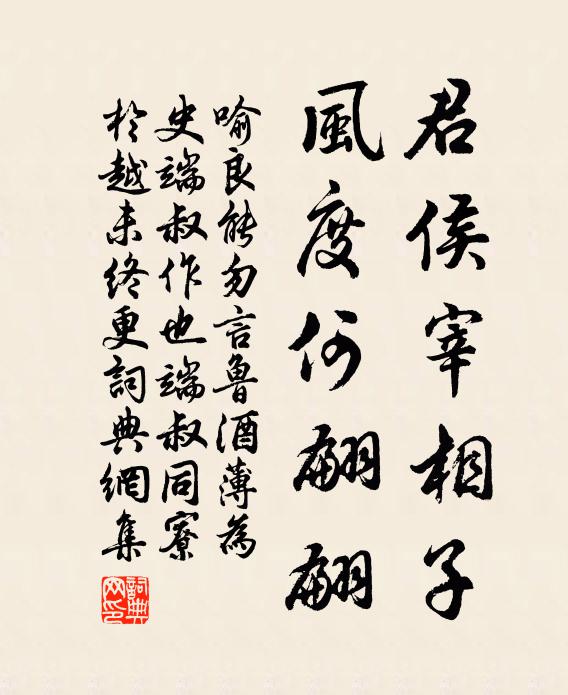 君侯宰相子
風度何翩翩
喻良能勿言魯酒薄為
史端叔作也端叔同寮
於越未終更詞典網集
詞典網印